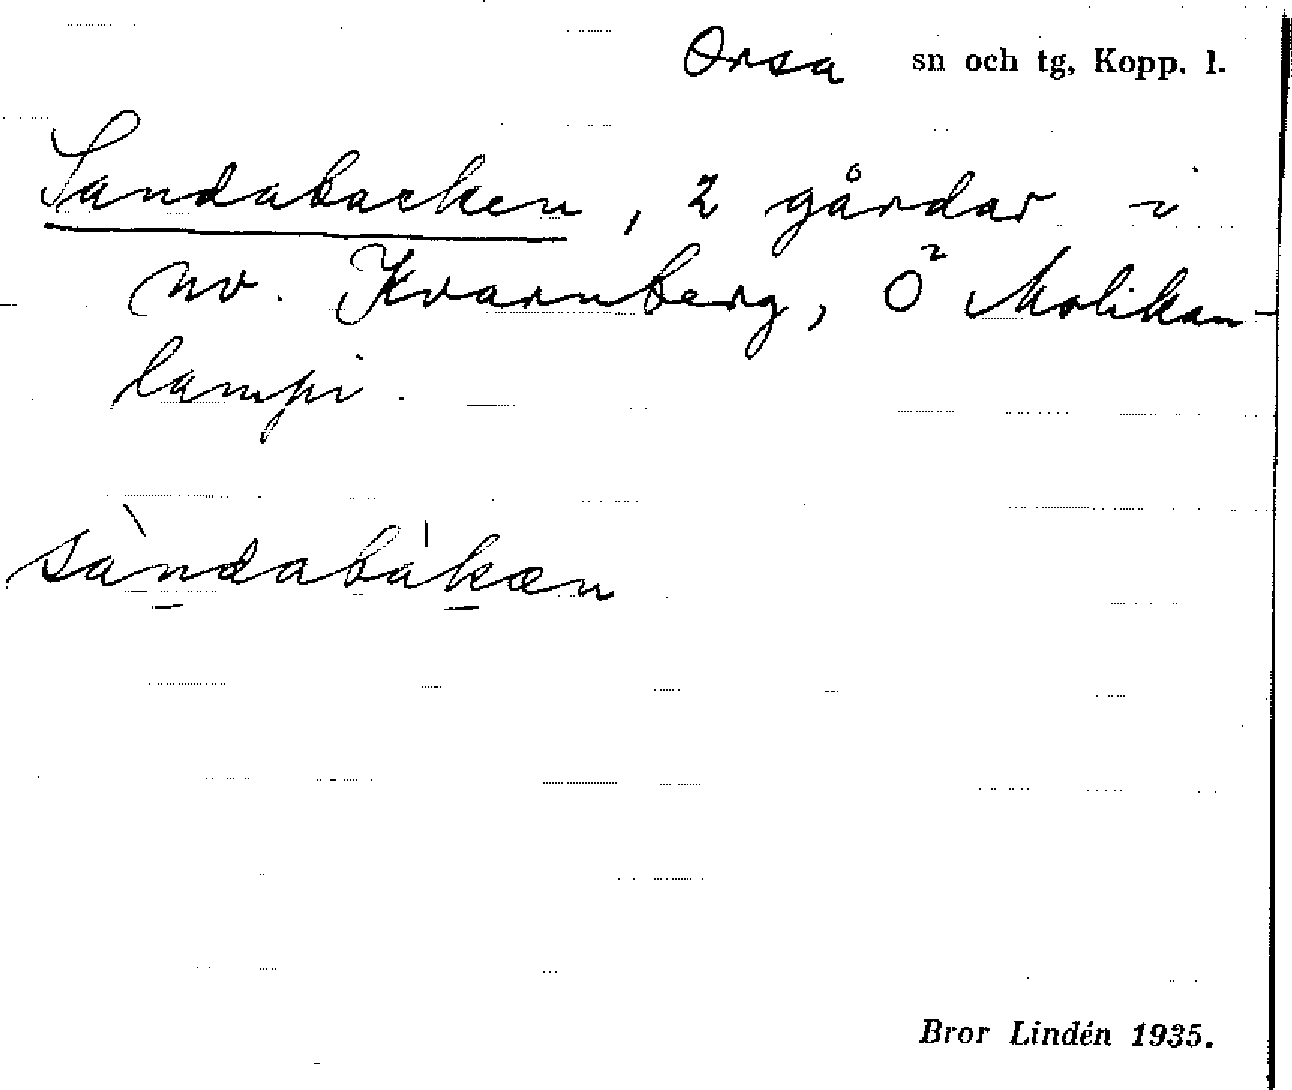 Orsa sn och tg, Kopp. l.
Sandabacken, 2 gårdar i
nv. Kvarnberg, Ö Molikan-
lampi.
sàndabàkæn
Bror Lindén 1935.